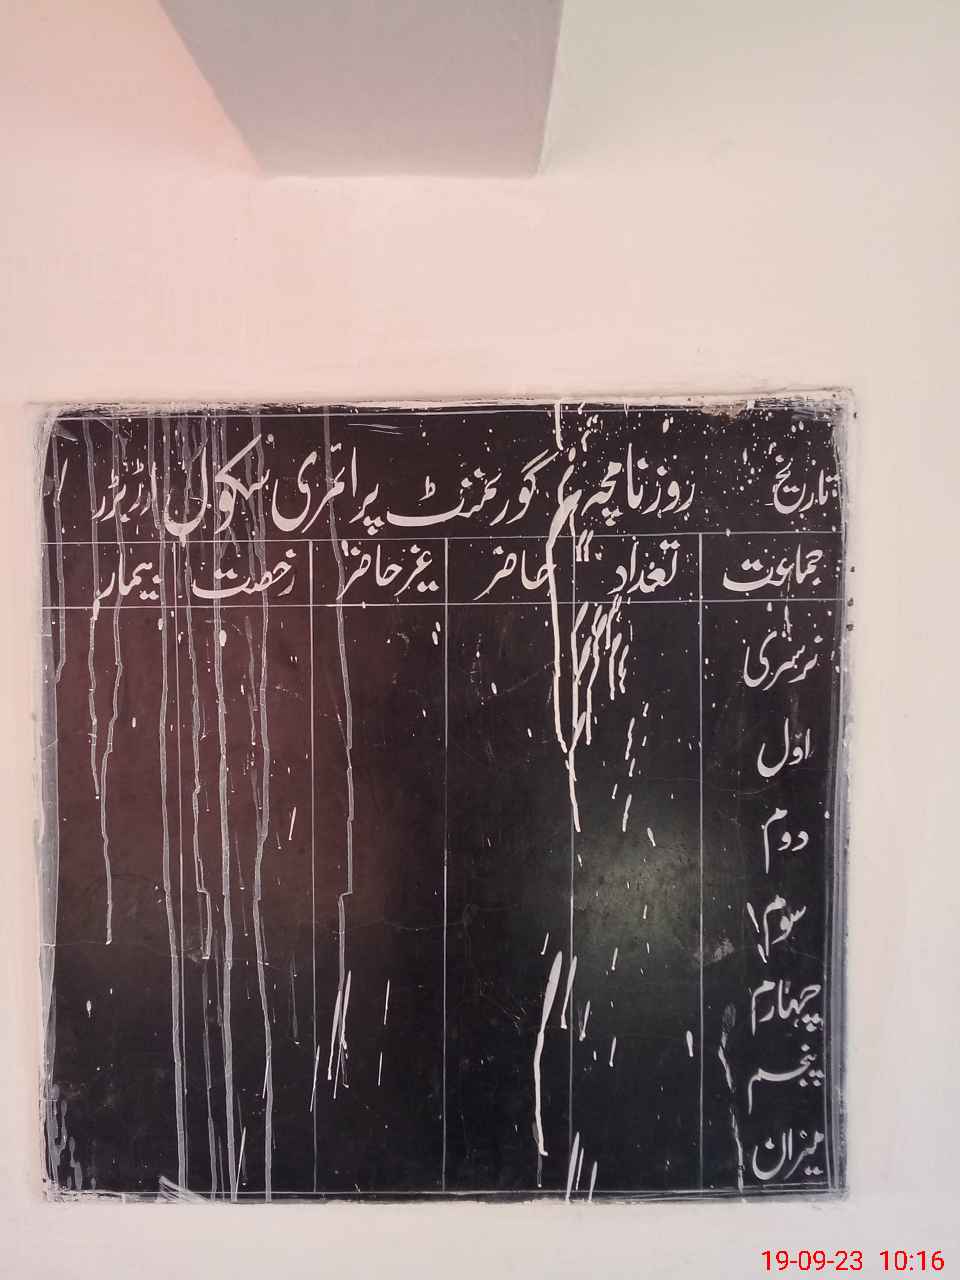 تاریخ روزنامچہ گورنمنٹ پرائمری سکول
جماعت تعداد حاضر غیرحاضر رخصت بیمار
نرسری
اوّل
دوم
سوم
چہارم
پنجم
میزان
19-09-23 10:16